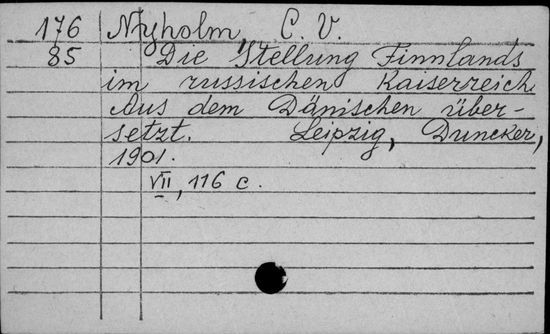 176 Nyholm, C. V.
85 Die Stellung Finnlands
im russischen Kaiserreich
Aus dem Dänischen über-
setzt. Leipzig, Duncker,
1901.
VII, 116 c.